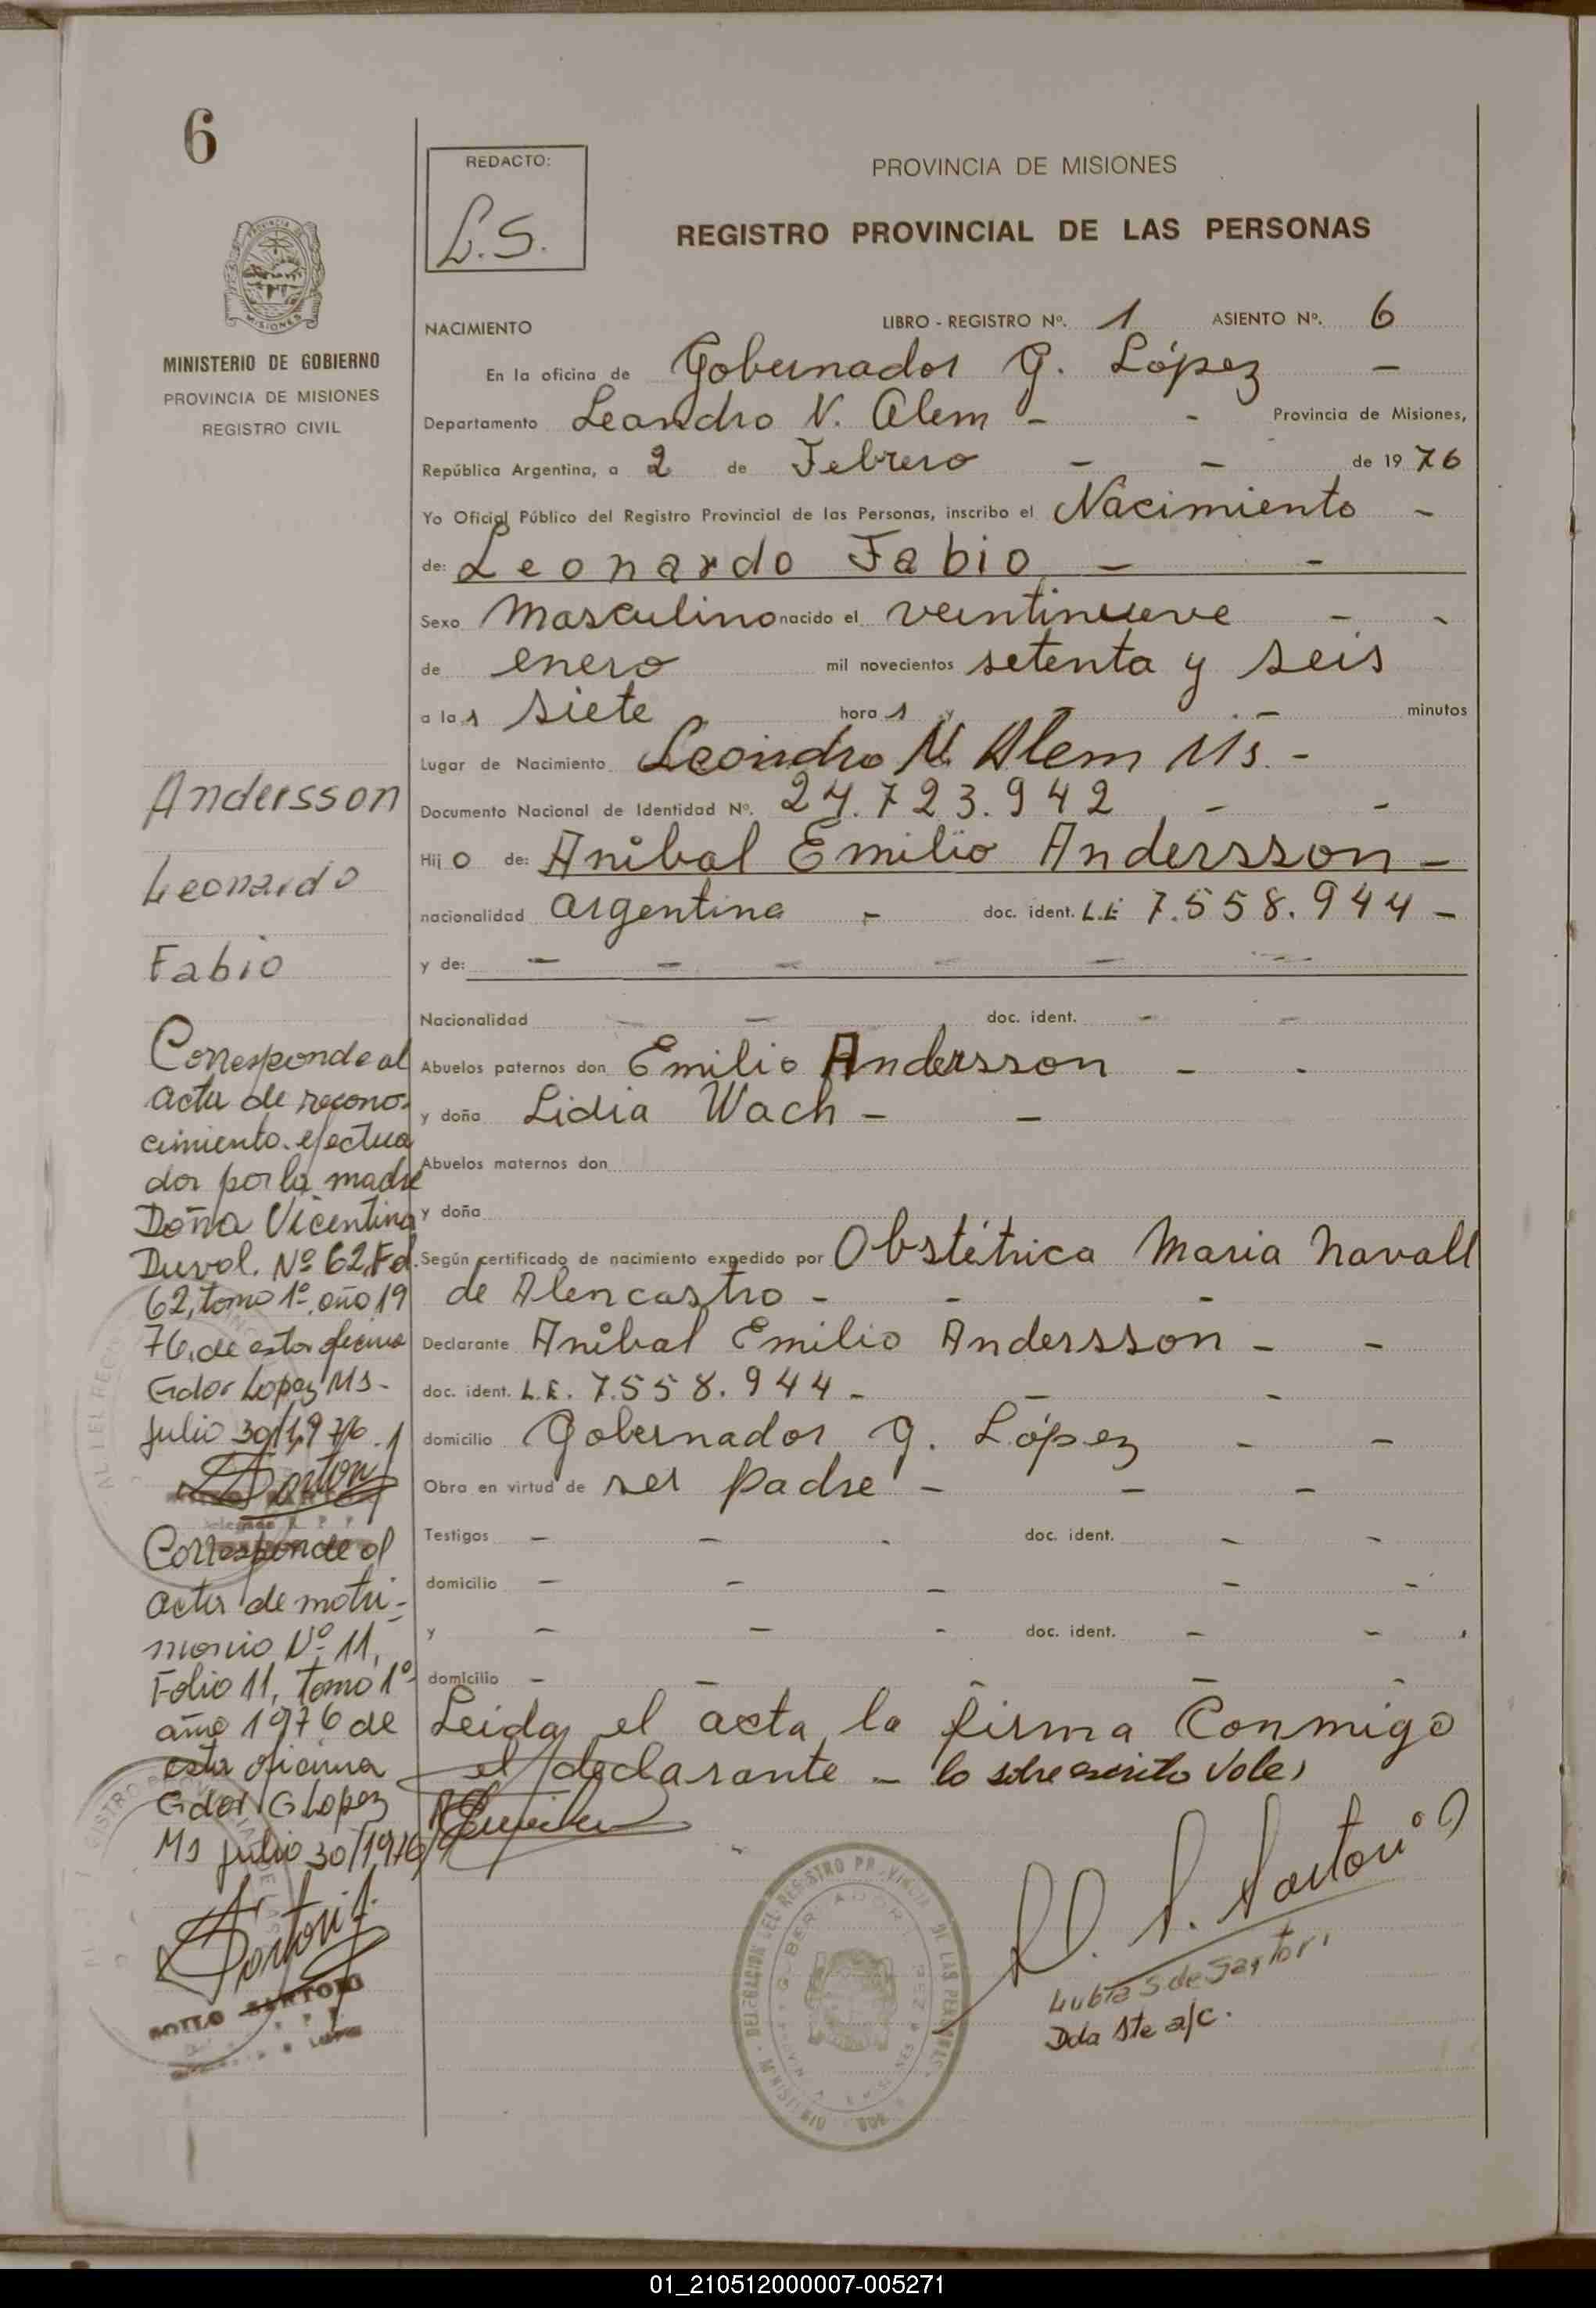 6
REDACTO:
L.S.
PROVINCIA DE MISIONES
REGISTRO PROVINCIAL DE LAS PERSONAS
MISIONES
MINISTERIO DE GOBIERNO
PROVINCIA DE MISIONES
REGISTRO CIVIL
NACIMIENTO LIBRO - REGISTRO Nº. 1 ASIENTO Nº. 6
En la oficina de Gobernador G. López -
Departamento Leandro N. Alem - - Provincia de Misiones,
República Argentina, a 2 de Febrero - - de 19 76
Yo Oficial Público del Registro Provincial de las Personas, inscribo el Nacimiento -
de: Leonardo Fabio - -
Sexo Masculino nacido el veintinueve - -
de enero mil novecientos setenta y seis
a las siete horas y - - minutos
Lugar de Nacimiento Leandro N. Alem Ms. -
Documento Nacional de Identidad Nº. 24.723.942 - -
Hijo de: Aníbal Emilio Andersson -
nacionalidad argentina - doc. ident. L.E 7.558.944 -
y de: - - - - - -
Nacionalidad - - doc. ident. - -
Abuelos paternos don Emilio Andersson - -
y doña Lidia Wach - -
Abuelos maternos don
y doña
Según certificado de nacimiento expedido por Obstétrica Maria Navall
de Alencastro - - -
Declarante Aníbal Emilio Andersson - -
doc. ident. L.E. 7.558.944 - - -
domicilio Gobernador G. López - -
Obra en virtud de ser padre - - -
Testigos - - - doc. ident. - -
domicilio - - - - -
y - - - doc. ident. - -
domicilio - - - - -
Leida el acta la firma Conmigo
el declarante - lo sobre escrito Vale,
Lubia S de Sartori
Dda Ste a/c.
Andersson
Leonardo
Fabio
Corresponde al
acta de recono-
cimiento efectua
dor por la madre
Doña Vicentina
Duval. Nº 62, Fol.
62, tomo 1º año 19
76, de esta oficina
Gdor Lopez Ms-
Julio 30/1976
Corresponde al
acta de matri-
monio Nº 11,
Folio 11, Tomo 1º
año 1976 de
esta oficina
Gdor G Lopez
Ms Julio 30/1976
SARTORI
01_210512000007-005271